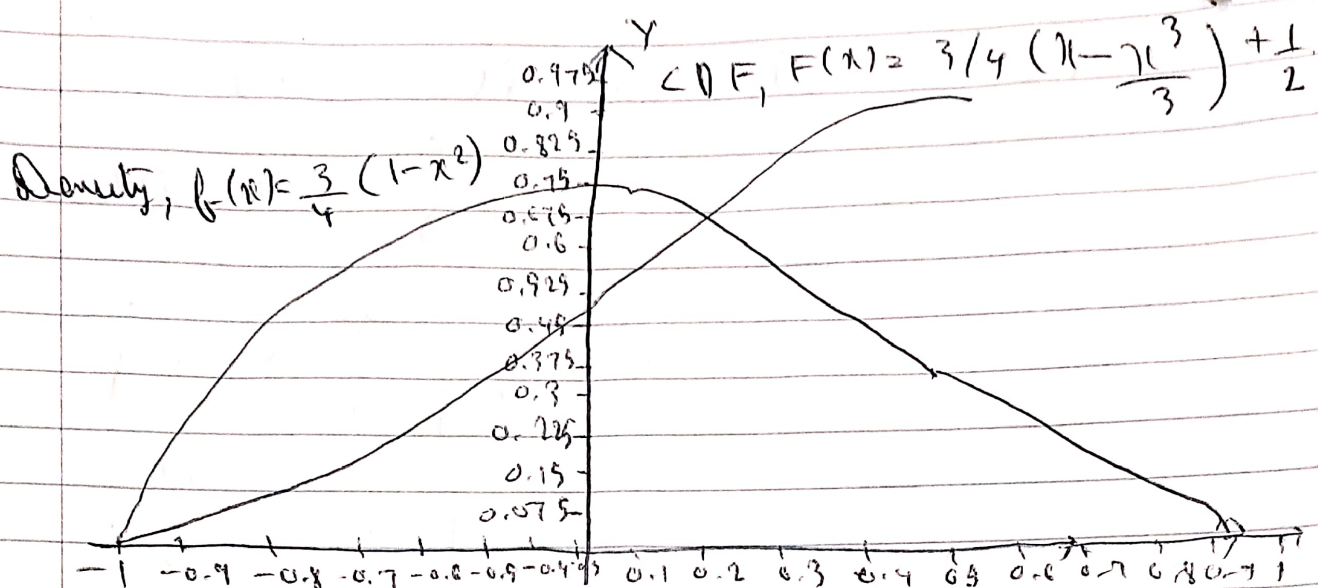 Y
CDF, F(x) = 3/4 (x - x³/3) + 1/2
Density, f(x) = 3/4 (1-x²)
0.975
0.9
0.825
0.75
0.675
0.6
0.525
0.45
0.375
0.3
0.225
0.15
0.075
-1 -0.9 -0.8 -0.7 -0.6 -0.5 -0.4 0.1 0.2 0.3 0.4 0.5 0.6 0.7 0.8 0.9 1